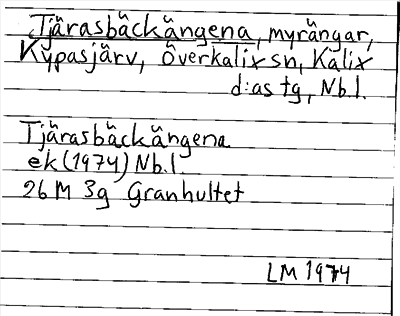 Tjärasbäckängena, myrängar,
Kypasjärv, Överkalix sn, Kalix
d:as tg, Nb.l.
Tjärasbäckängena
ek (1974) Nb.l.
26 M 3g Granhultet
LM 1974